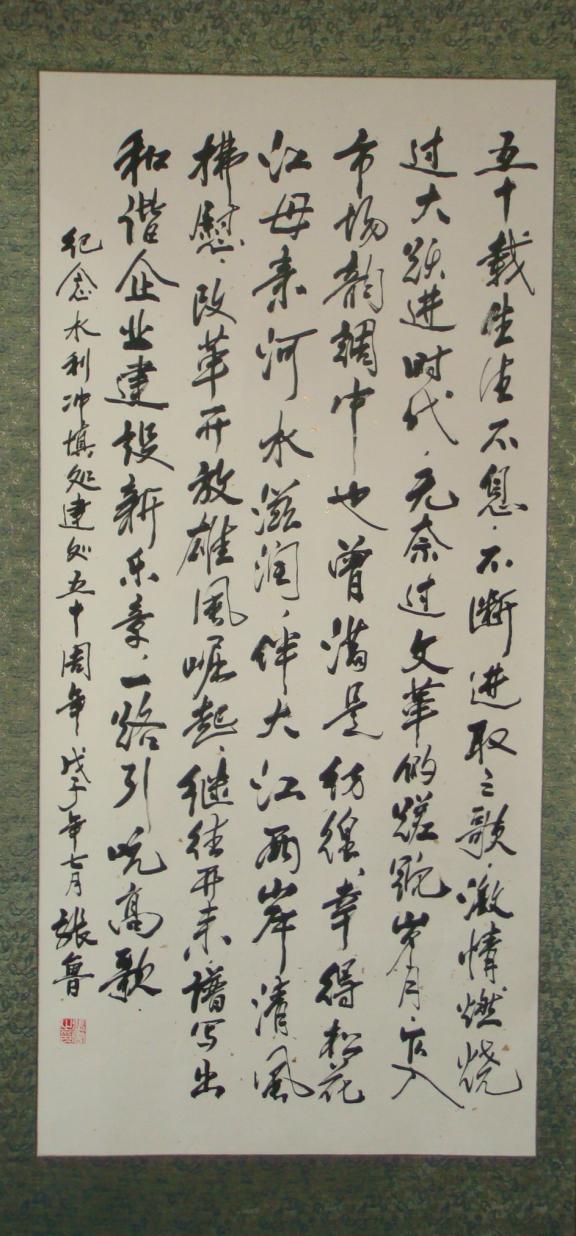 五十载生活不息、不断进取之歌、激情燃烧
过大跃进时代、无奈过文革的蹉跎岁月、在入
市场韵调中也曾满是彷徨、幸得松花
江母亲河水滋润、伴大江两岸清风
拂慰、改革开放雄风崛起、继往开来、谱写出
和谐企业建设新乐章、一路引吭高歌
纪念水利冲填处建处五十周年 戊子年七月 张鲁